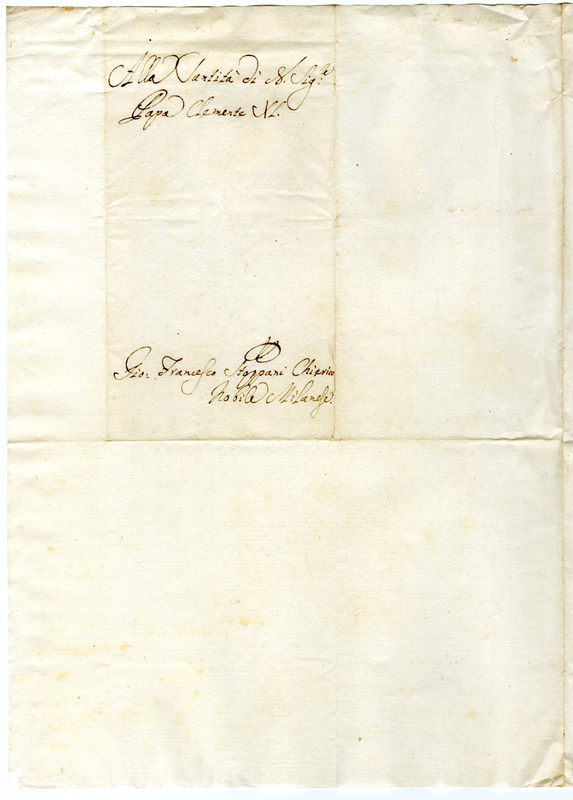 Alla Santità di N. Sigre
Papa Clemente XI.
Gio: Francesco Stoppani Chierico
Nobile Milanese.